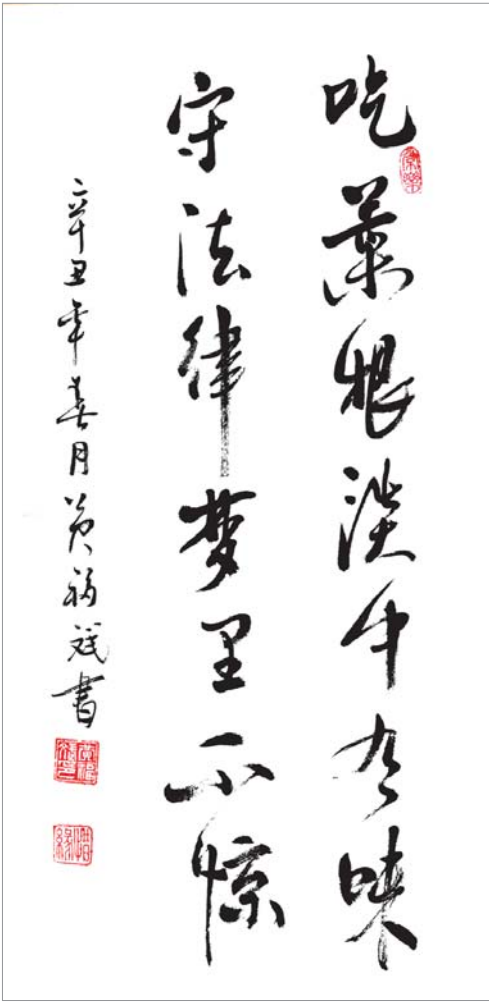 吃菜根淡中有味
守法律梦里不惊
辛丑年春月黄福斌書